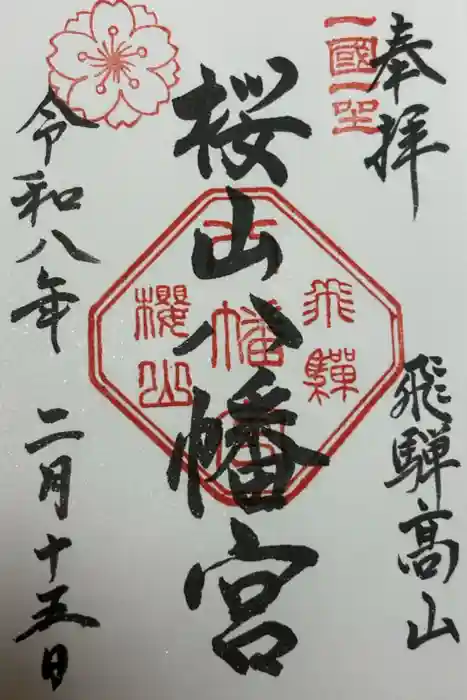 奉拝
一國一社
飛騨高山
桜山八幡宮
飛騨
八幡宮
櫻山
令和八年 二月十五日